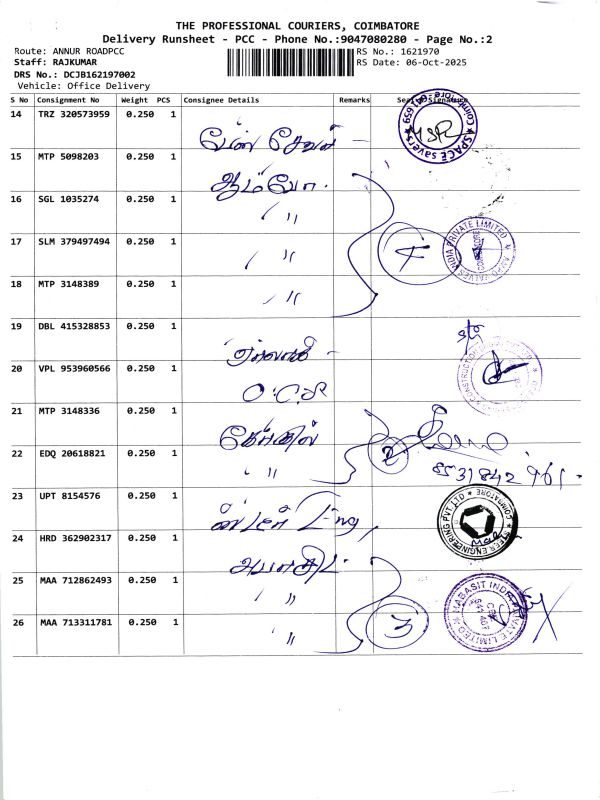 THE PROFESSIONAL COURIERS, COIMBATORE
Delivery Runsheet - PCC - Phone No.:9047080280 - Page No.:2
Route: ANNUR ROADPCC
RS No.: 1621970
Staff: RAJKUMAR
RS Date: 06-Oct-2025
DRS No.: DCJB162197002
Vehicle: Office Delivery
S No Consignment No Weight PCS Consignee Details Remarks
14 TRZ 320573959 0.250 1
SPACE savers
15 MTP 5098203 0.250 1
16 SGL 1035274 0.250 1
〃
17 SLM 379497494 0.250 1 〃
4
PRIVATE LIMITED
18 MTP 3148389 0.250 1 〃
19 DBL 415328853 0.250 1
20 VPL 953960566 0.250 1
O.C.R
21 MTP 3148336 0.250 1
22 EDQ 20618821 0.250 1 〃
2
8531842961
23 UPT 8154576 0.250 1
STEER ENGINEERING PVT LTD
COIMBATORE
24 HRD 362902317 0.250 1
25 MAA 712862493 0.250 1 〃
26 MAA 713311781 0.250 1 〃
3
HABASIT INDIA PRIVATE LIMITED